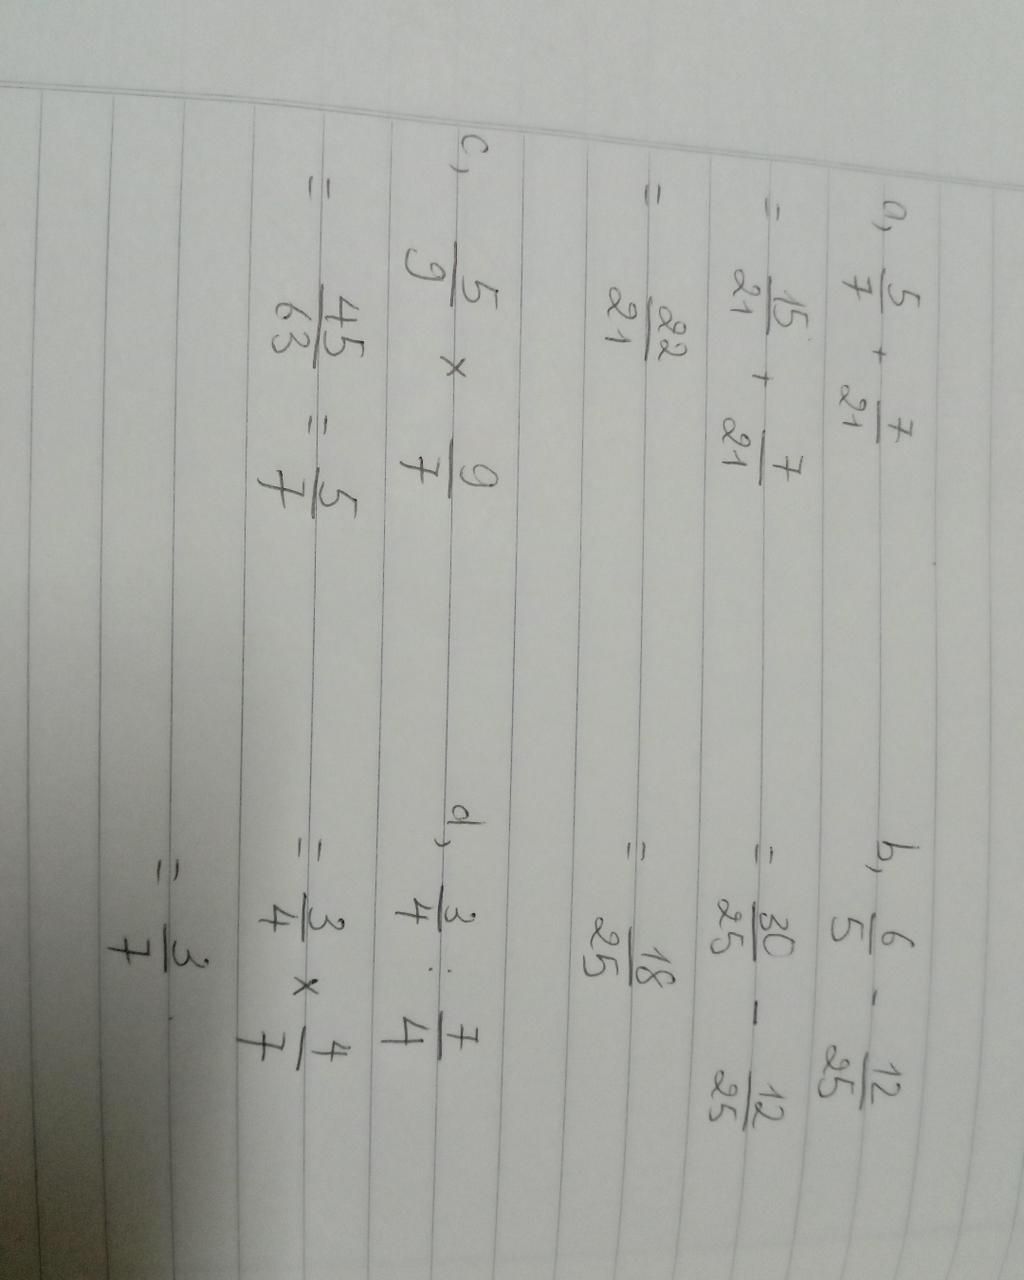 a, 5/7 + 7/21
= 15/21 + 7/21
= 22/21
b, 6/5 - 12/25
= 30/25 - 12/25
= 18/25
c, 5/9 × 9/7
= 45/63 = 5/7
d, 3/4 : 7/4
= 3/4 × 4/7
= 3/7